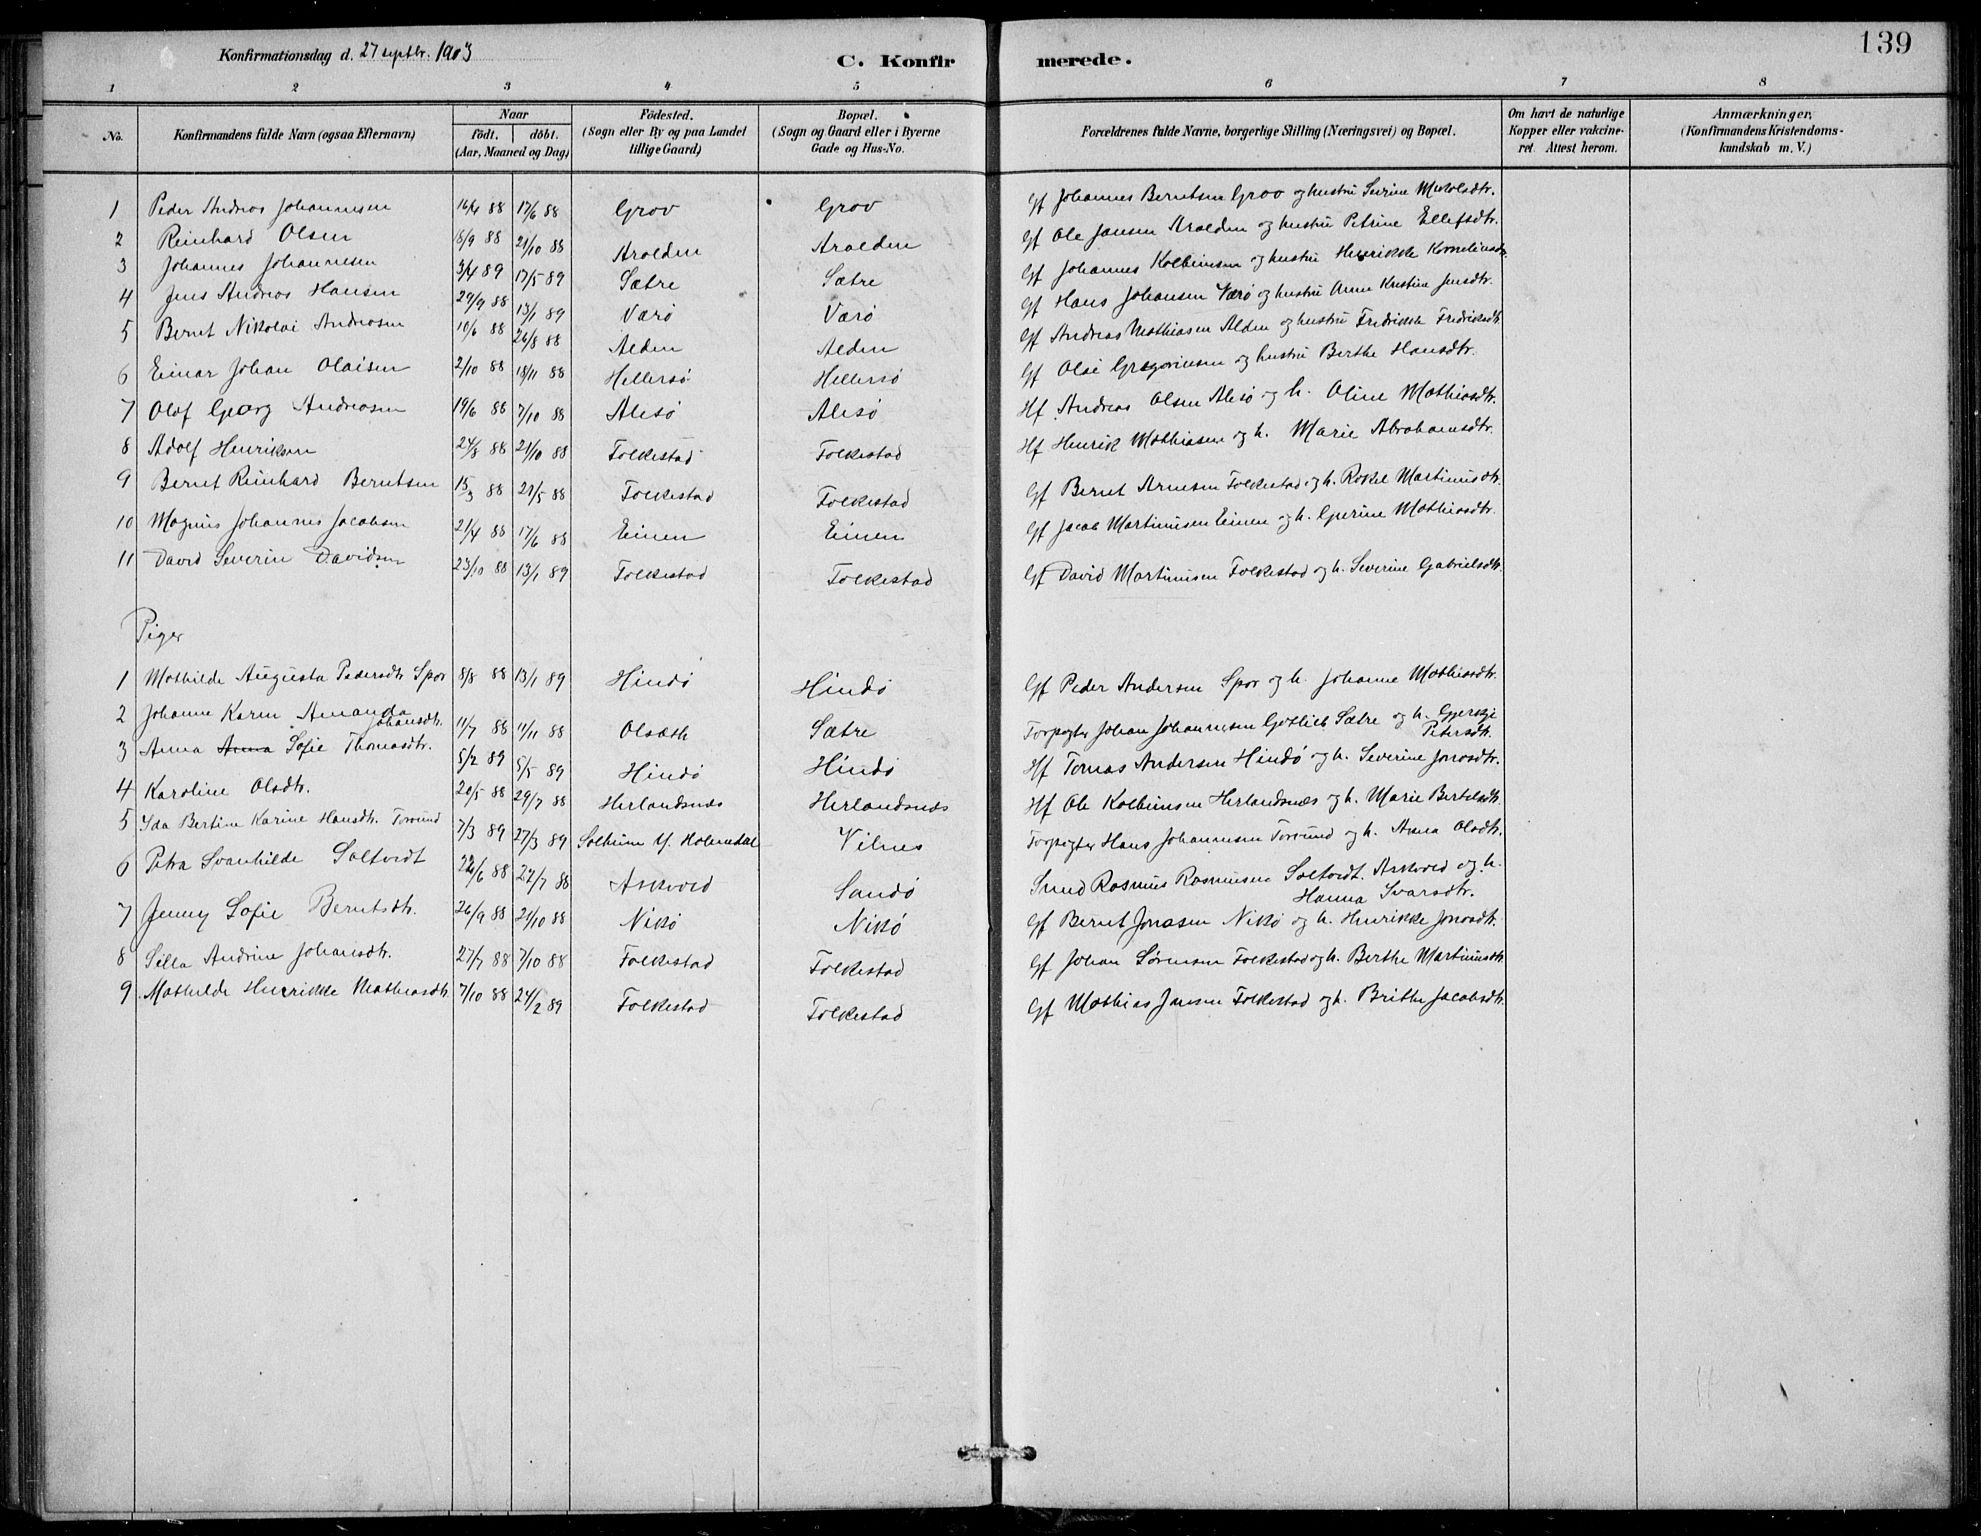 139
Konfirmationsdag d. 27 septbr. 1903
C. Konfirmerede.
1 2 3 4 5 6 7 8
No. | Konfirmandens fulde Navn (ogsaa Efternavn) | Naar født. døbt. (Aar, Maaned og Dag) | Födested. (Sogn eller By og paa Landet tillige Gaard) | Bopæl. (Sogn og Gaard eller i Byerne Gade og Hus-No. | Forældrenes fulde Navne, borgerlige Stilling (Næringsvei) og Bopæl. | Om havt de naturlige Kopper eller vakcineret. Attest herom. | Anmærkninger, (Konfirmandens Kristendomskundskab m. V.)
1 Peder Andreas Johannesen 16/4 88 17/6 88 Grov Grov Gf Johannes Berntsen Grov og hustru Serine
2 Reinhard Olsen 18/9 88 21/10 88 Aralden Aralden Gf Ole Jansen Aralden og hustru Petrine Ellefsdtr.
3 Johannes Johannesen 3/4 89 17/5 89 Sætre Sætre Gf Johannes Kolbeinsen og hustru Henrikke Korneliusdtr
4 Jens Andreas Hansen 29/9 88 13/1 89 Værø Værø Gf Hans Johansen Værø og hustru Anne Kristine Jensdtr.
5 Bernt Nikolai Andreasen 10/6 88 26/8 88 Alden Alden Gf Andreas Mathiasen Alden og hustru Fredrikke Fredriksdtr
6 Einar Johan Olaisen 2/10 88 18/11 88 Hellersø Hellersø Gf Olai Gregoriusen og hustru Berthe Hansdtr.
7 Olaf Georg Andreasen 19/6 88 7/10 88 Alesø Alesø Hf. Andreas Olsen Alesø og h. Oline Mathiasdtr.
8 Adolf Henriksen 24/8 88 21/10 88 Folkestad Folkestad Hf Henrik Mathiasen og h. Marie Abrahamsdtr.
9 Bernt Reinhard Berntsen 15/3 88 21/5 88 Folkestad Folkestad Gf Bernt Arnesen Folkestad og h. Rakel Martinusdtr.
10 Magnus Johannes Jacobsen 21/4 88 17/6 88 Einen Einen Gf Jacob Martinusen Einen og h. Gjerine Mathiasdtr.
11 David Severin Davidsen 23/10 88 13/1 89 Folkestad Folkestad Gf David Martinusen Folkestad og h. Severine Gabrielsdtr.
Piger
1 Mathilde Augusta Pedersdtr Spor 8/8 88 13/1 89 Hindø Hindø Gf Peder Andersen Spor og h. Johanne Mathiasdtr.
2 Johanne Karen Amanda Johansdtr. 11/7 88 11/11 88 Olsæth Sætre Forpagter Johan Johannesen Gotlieb Sætre og h. Gjerskje Petersdtr.
3 Anna Anna Sofie Thomasdtr. 5/2 89 5/5 89 Hindø Hindø Hf Tomas Andersen Hindø og h. Severine Jonasdtr.
4 Karoline Olsdtr. 20/5 88 29/7 88 Herlandsnes Herlandsnes Hf Ole Kolbeinsen Herlandsnæs og h. Marie Bertelsdtr.
5 Ida Bertine Karine Hansdtr. Torsund 7/3 89 27/3 89 Solheim Y. Holmedal Vilnes Forpagter Hans Johannesen Torsund og h. Anna Olsdtr.
6 Petra Svanhilde Soltvedt 24/6 88 22/7 88 Askvold Sandø Smed Rasmus Rasmusen Soltvedt. Askvold og h. Hanna Ivarsdtr.
7 Jenny Sofie Berntsdtr. 26/9 88 21/10 88 Nikø Nikø Gf Bernt Jonasen Nikø og h. Henrikke Jonasdtr.
8 Silla Andrine Johansdtr. 27/7 88 7/10 88 Folkestad Folkestad Gf Johan Sørensen Folkestad og h. Berthe Martinusdtr
9 Mathilde Henrikke Mathiasdtr. 7/10 88 24/2 89 Folkestad Folkestad Gf Mathias Jansen Folkestad og h. Brithe Jacobsdtr.